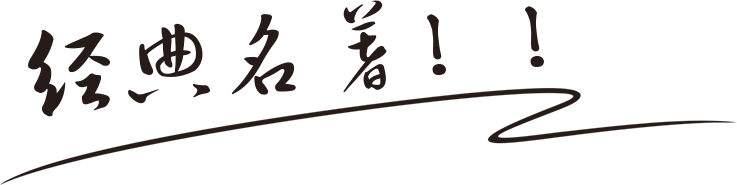 经典名著！！